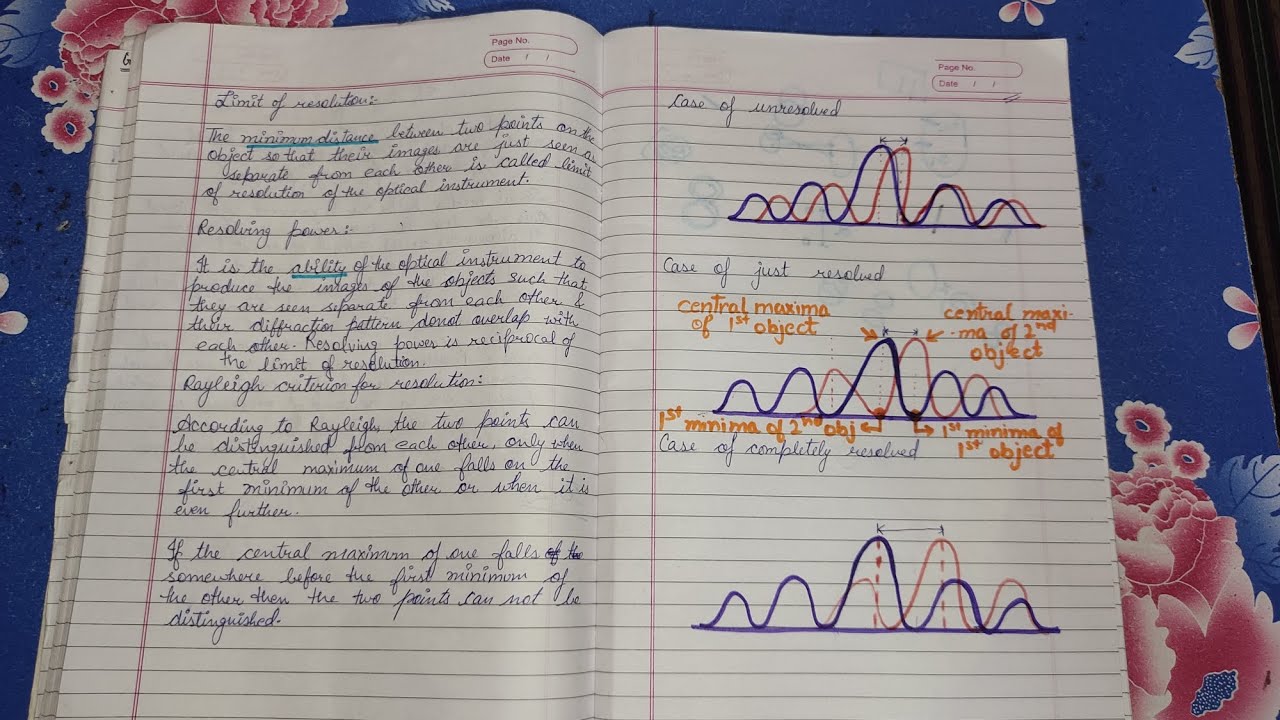 Page No.
Date / /
Limit of resolution:-
The minimum distance between two points on the
object so that their images are just seen a
separate from each other is called limit
of resolution of the optical instrument.
Resolving power:-
It is the ability of the optical instrument to
produce the images of the objects such that
they are seen separate from each other &
their diffraction pattern donot overlap with
each other. Resolving power is reciprocal of
the limit of resolution.
Rayleigh criterion for resolution:
According to Rayleigh, the two points can
be distinguished from each other, only when
the central maximum of one falls on the
first minimum of the other or when it is
even further.
If the central maximum of one falls
somewhere before the first minimum of
the other then the two points can not be
distinguished.
Page No.
Date / /
Case of unresolved
Case of just resolved
central maxima
of 1st object
central maxi-
ma of 2nd
object
1st
minima of 2nd obj
1st minima of
1st object
Case of completely resolved